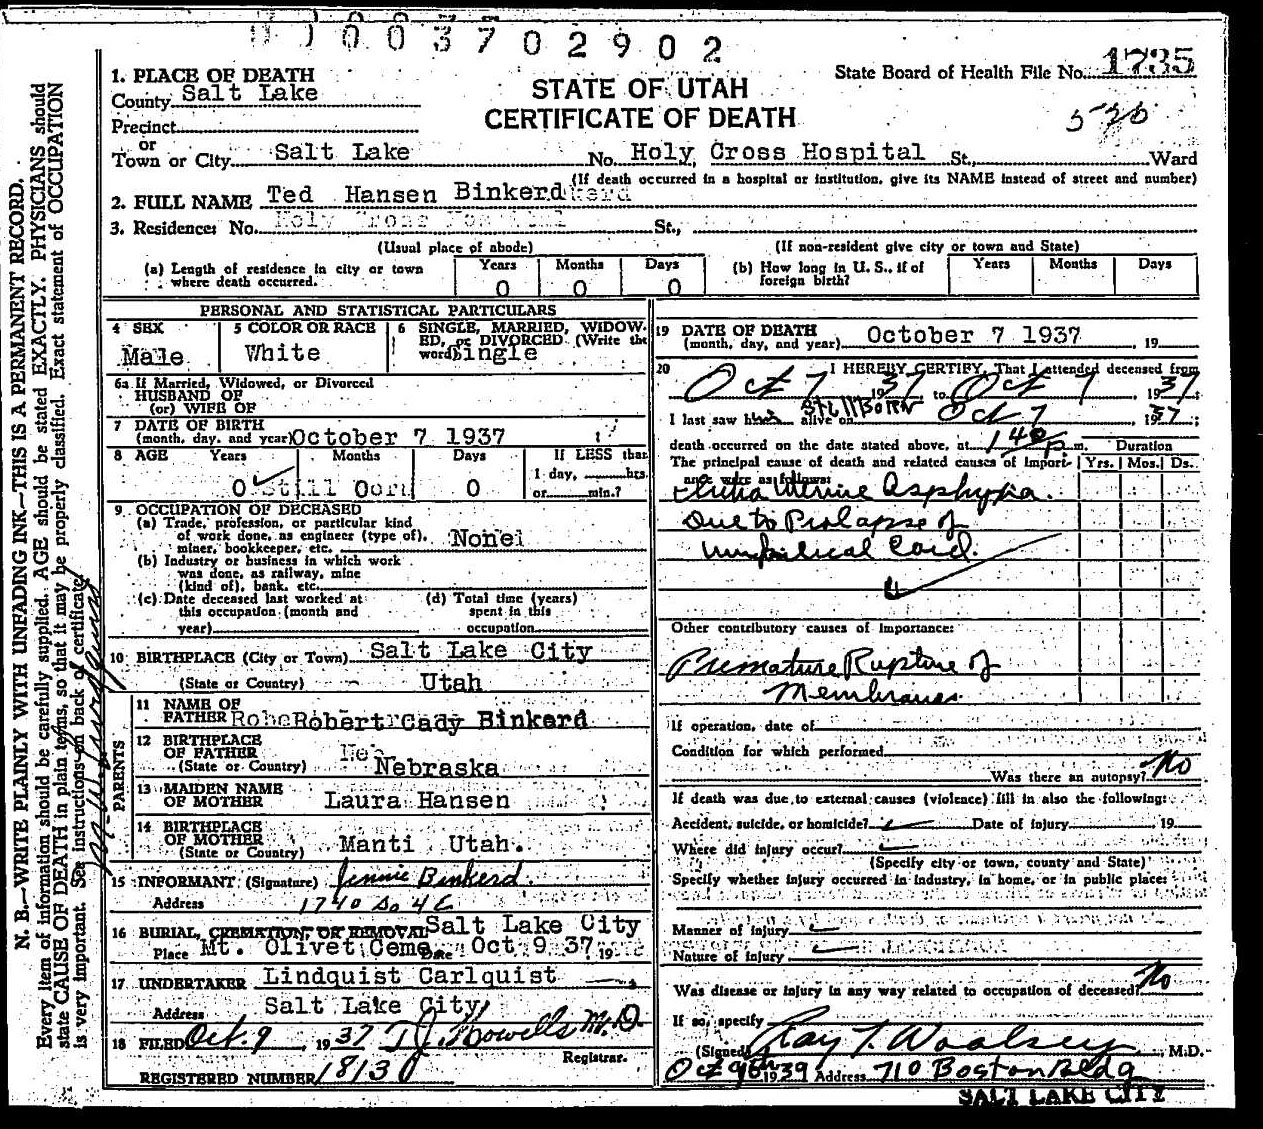 0003702902
1. PLACE OF DEATH
County Salt Lake
Precinct
or
Town or City Salt Lake No. Holy Cross Hospital St., Ward
STATE OF UTAH
CERTIFICATE OF DEATH
State Board of Health File No. 1735
520
(If death occurred in a hospital or institution, give its NAME instead of street and number)
2. FULL NAME Ted Hansen Binkerd
3. Residence: No. Holy Cross Hospital St.,
(Usual place of abode) (If non-resident give city or town and State)
(a) Length of residence in city or town where death occurred. Years 0 Months 0 Days 0
(b) How long in U. S., if of foreign birth? Years Months Days
PERSONAL AND STATISTICAL PARTICULARS
4 SEX Male
5 COLOR OR RACE White
6 SINGLE, MARRIED, WIDOWED, or DIVORCED (Write the word) Single
6a If Married, Widowed, or Divorced
HUSBAND OF
(or) WIFE OF
7 DATE OF BIRTH
(month, day, and year) October 7 1937
8 AGE Years Months Days If LESS than
1 day, hrs.
or min.?
0 Still Born 0
9 OCCUPATION OF DECEASED
(a) Trade, profession, or particular kind
of work done, as engineer (type of),
miner, bookkeeper, etc. None
(b) Industry or business in which work
was done, as railway, mine
(kind of), bank, etc.
(c) Date deceased last worked at
this occupation (month and
year)
(d) Total time (years)
spent in this
occupation
10 BIRTHPLACE (City or Town) Salt Lake City
(State or Country) Utah
PARENTS
11 NAME OF
FATHER Robert Cady Binkerd
12 BIRTHPLACE
OF FATHER
(State or Country) Nebraska
13 MAIDEN NAME
OF MOTHER Laura Hansen
14 BIRTHPLACE
OF MOTHER
(State or Country) Manti Utah.
15 INFORMANT (Signature) Jennie Binkerd.
Address 1740 So 4 E
16 BURIAL, CREMATION, OR REMOVAL Salt Lake City
Place Mt. Olivet Ceme Date Oct 9 37, 19
17 UNDERTAKER Lindquist Carlquist
Address Salt Lake City
18 FILED Oct. 9, 1937 T J Howells M.D.
Registrar.
REGISTERED NUMBER 1813
19 DATE OF DEATH
(month, day, and year) October 7 1937, 19
20 I HEREBY CERTIFY, That I attended deceased from
Oct 7 1937 to Oct 7, 1937;
I last saw him alive on Stillborn Oct 7, 1937;
death occurred on the date stated above, at 1 40 p m. Duration
The principal cause of death and related causes of importance were as follows: Yrs. Mos. Ds.
Intra Uterine Asphyxia.
Due to Prolapse of
Umbilical Cord.
Other contributory causes of importance:
Premature Rupture of
Membranes
If operation, date of
Condition for which performed
Was there an autopsy? No
If death was due to external causes (violence) fill in also the following:
Accident, suicide, or homicide? Date of injury 19
Where did injury occur?
(Specify city or town, county and State)
Specify whether injury occurred in industry, in home, or in public place:
Manner of injury
Nature of injury
Was disease or injury in any way related to occupation of deceased? No
If so, specify
(Signed) Ray T. Woolsey, M.D.
Oct 9th 1939 Address 710 Boston Bldg
SALT LAKE CITY
N. B.—WRITE PLAINLY WITH UNFADING INK—THIS IS A PERMANENT RECORD.
Every item of information should be carefully supplied. AGE should be stated EXACTLY. PHYSICIANS should
state CAUSE OF DEATH in plain terms, so that it may be properly classified. Exact statement of OCCUPATION
is very important. See instructions on back of certificate.